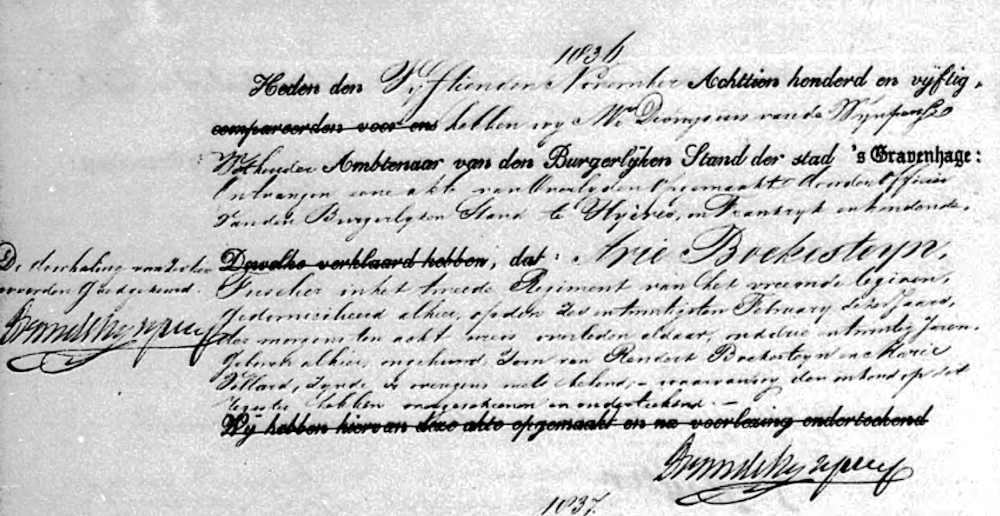 1836
Heden den Vyftienden November Achttien honderd en vyftig,
compareerden voor ons hebben wy Mr Dionysius van de Wynpersse
Wethouder Ambtenaar van den Burgerlyken Stand der stad 's Gravenhage:
Ontvangen eene akte van Overlyden opgemaakt door den Officier
van den Burgerlyken Stand te Hyères, in Frankryk inhoudende,
De doorhaling van
woorden Goedgekeurd.
Dewelke verklaard hebben, dat: Arie Boekesteyn,
Fuselier in het tweede Regiment van het vreemde legioen,
Gedomicilieerd alhier, op den en twintigsten February dezes Jaars,
des morgens ten acht ure overleden aldaar, oud drie en twintig Jaren,
Geboren alhier, ongehuwd, Zoon van Boekesteyn en Marie
zynde de overigens niets bekend, – waarvan wy den inhoud op dit
register hebben en onderteekend. –
Wy hebben hiervan deze akte opgemaakt en na voorlezing onderteekend
1837.